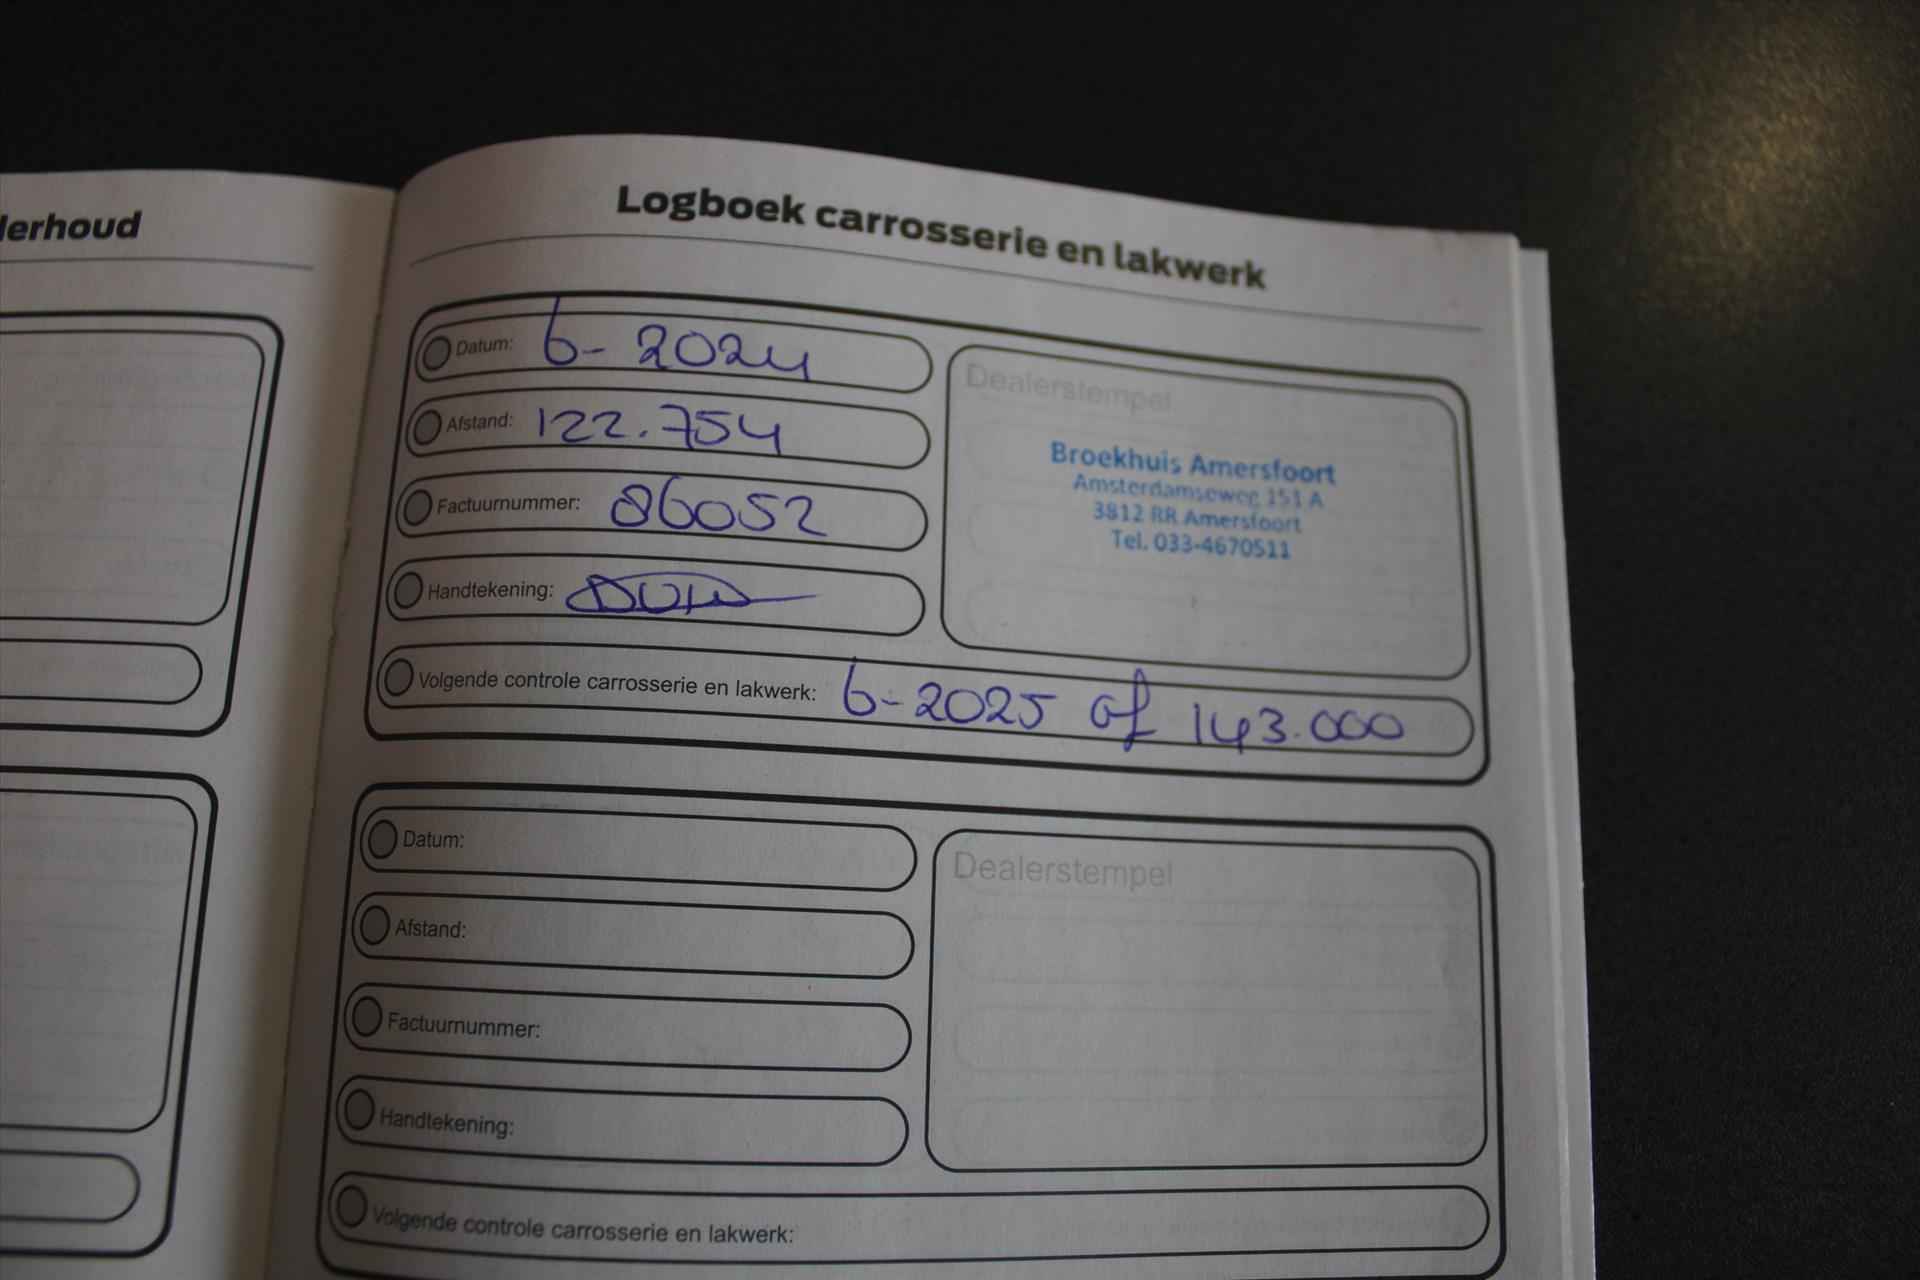 derhoud
Logboek carrosserie en lakwerk
Datum: 6-2024
Afstand: 122.754
Factuurnummer: 86052
Handtekening:
Volgende controle carrosserie en lakwerk: 6-2025 of 143.000
Dealerstempel
Broekhuis Amersfoort
Amsterdamseweg 151 A
3812 RR Amersfoort
Tel. 033-4670511
Datum:
Afstand:
Factuurnummer:
Handtekening:
Volgende controle carrosserie en lakwerk:
Dealerstempel